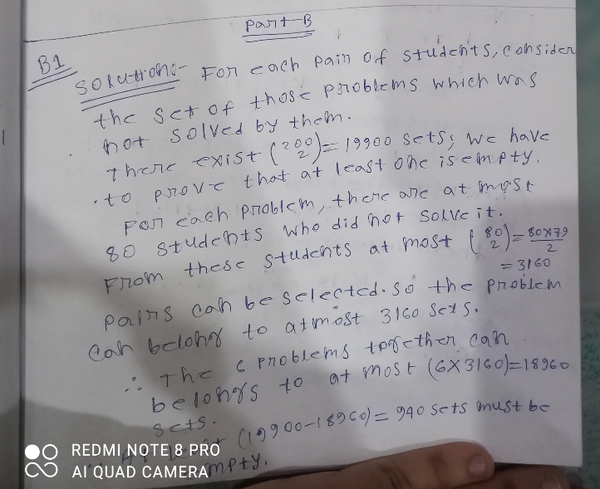 Part-B
B1
Solution:- For each pair of students, consider
the set of those problems which was
not solved by them.
There exist (200 2) = 19900 sets; we have
to prove that at least one is empty.
For each problem, there are at most
80 students who did not solve it.
From these students at most (80 2) = 80×79/2
= 3160
pairs can be selected. so the problem
can belong to atmost 3160 sets.
∴ The 6 problems together can
belongs to at most (6×3160) = 18960
sets.
(19900-18960) = 940 sets must be
empty.
REDMI NOTE 8 PRO
AI QUAD CAMERA